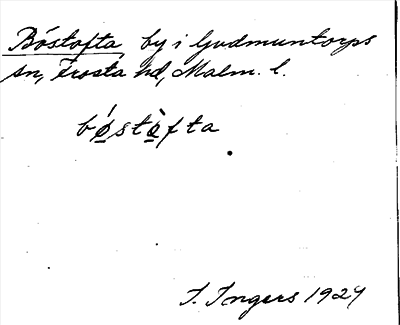 Bóstofta, by i Gudmuntorps
sn, Frosta hd, Malm. l.
bóstòfta
I. Ingers 1924